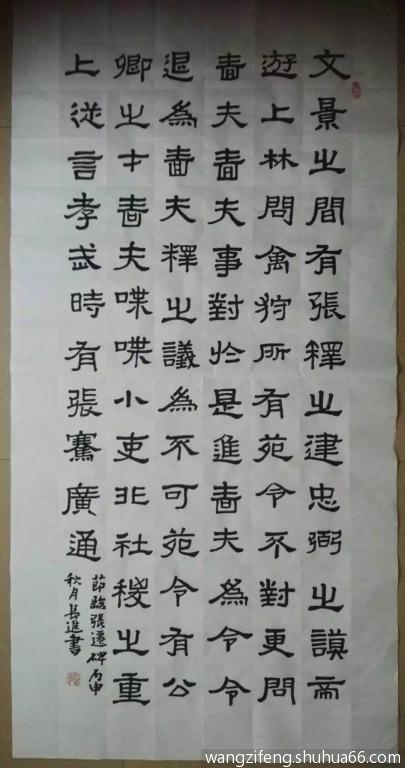 文景之間有張釋之建忠弼之謨帝
遊上林問禽狩所有苑令不對更問
嗇夫嗇夫事對於是進嗇夫為令令
退為嗇夫釋之議為不可苑令有公
卿之才嗇夫喋喋小吏非社稷之重
上從言孝武時有張騫廣通
節臨張遷碑丙申
秋月長進書
wangzifeng.shuhua66.com